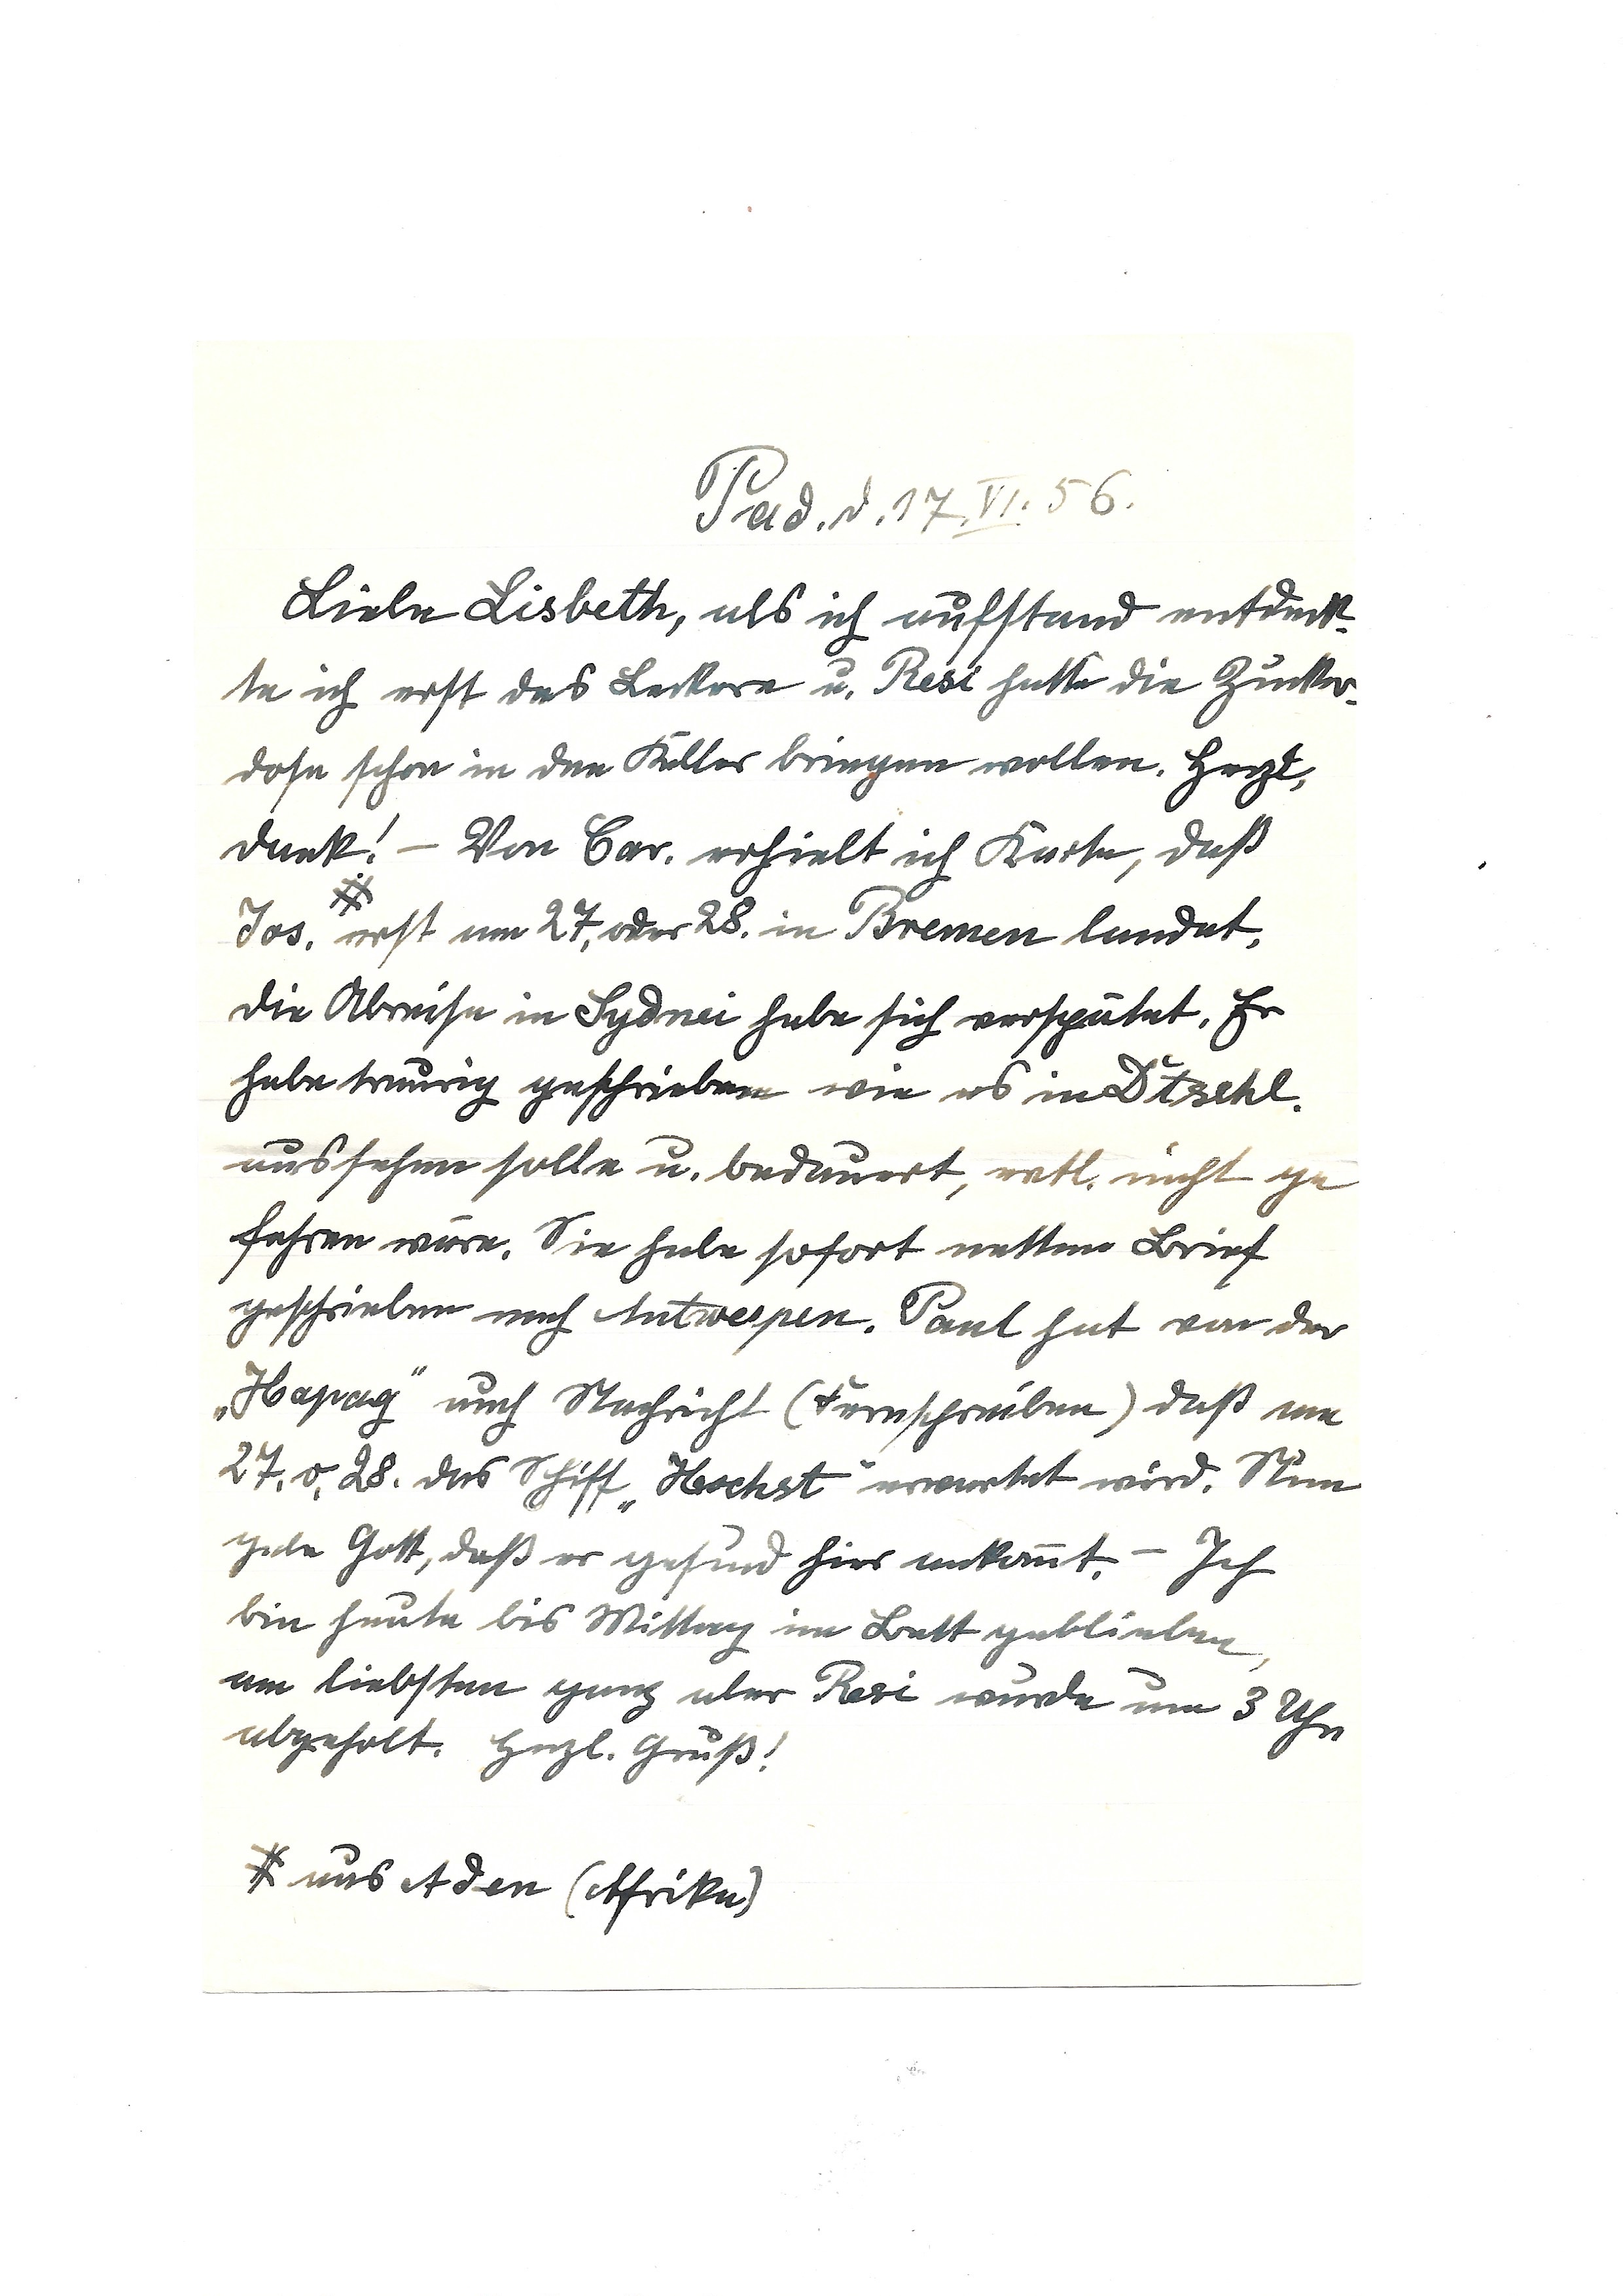 Pad. d. 17. VI. 56.
Liebe Lisbeth, als ich aufstand entdeck-
te ich erst das Leckere u. Resi hatte die Zucker-
dose schon in den Keller bringen wollen. Herzl.
Dank! – Von Car. erhielt ich Karte, daß
Jos. * erst am 27. oder 28. in Bremen landet.
Die Abreise in Sydnei habe sich verspätet. Er
habe traurig geschrieben wie es in Dtschl.
aussehen solle u. bedauert, evtl. nicht ge
fahren wäre. Sie habe sofort netten Brief
geschrieben nach Antwerpen. Paul hat von der
„Hapag" auch Nachricht (Fernschreiben) daß am
27. o. 28. das Schiff „Hochst" erwartet wird. Nun
gebe Gott, daß er gesund hier ankom̄t. – Ich
bin heute bis Mittag im Bett geblieben,
am liebsten ganz aber Resi wurde um 3 Uhr
abgeholt. Herzl. Gruß!
* aus Aden (Afrika)